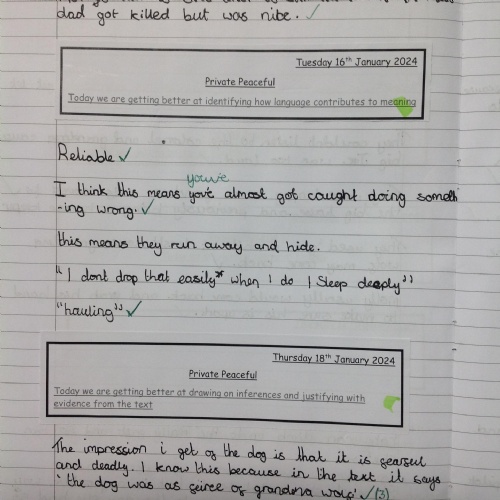 dad got killed but was nibe.
Tuesday 16th January 2024
Private Peaceful
Today we are getting better at identifying how language contributes to meaning
Reliable
you've
I think this means yov'e almost got caught doing someth
-ing wrong.
this means they run away and hide.
"I dont drop that easily" when I do I Sleep deeply"
"hauling"
Thursday 18th January 2024
Private Peaceful
Today we are getting better at drawing on inferences and justifying with
evidence from the text
The impression i get of the dog is that it is fearful
and deadly. I know this because in the text it says
'the dog was as feirce of grandma wolf' (3)